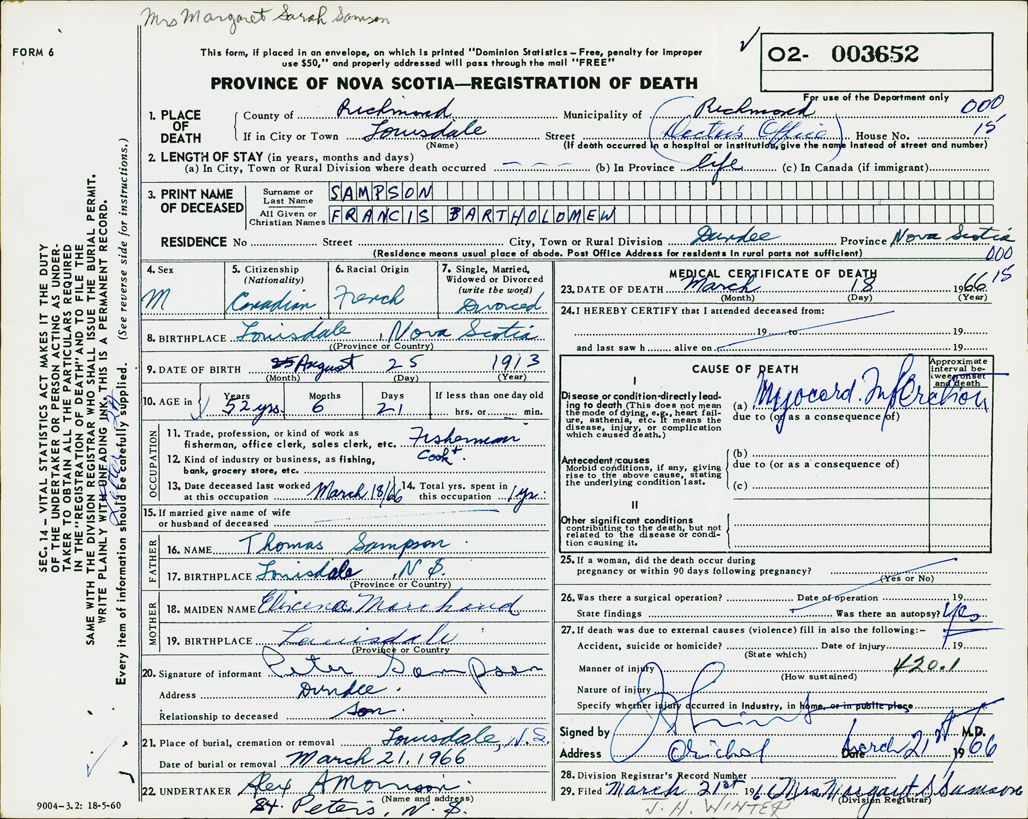 Mrs Margaret Sarah Samson
FORM 6
This form, if placed in an envelope, on which is printed "Dominion Statistics – Free, penalty for improper
use $50," and properly addressed will pass through the mail "FREE"
PROVINCE OF NOVA SCOTIA—REGISTRATION OF DEATH
O2- 003652
For use of the Department only
000
15
1. PLACE OF DEATH
County of Richmond Municipality of Richmond
If in City or Town Louisdale Street (Doctor's Office) House No.
(Name) (If death occurred in a hospital or institution, give the name instead of street and number)
2. LENGTH OF STAY (in years, months and days)
(a) In City, Town or Rural Division where death occurred — — — (b) In Province life (c) In Canada (if immigrant)
3. PRINT NAME OF DECEASED
Surname or Last Name SAMPSON
All Given or Christian Names FRANCIS BARTHOLOMEW
RESIDENCE No Street City, Town or Rural Division Dundee Province Nova Scotia
(Residence means usual place of abode. Post Office Address for residents in rural parts not sufficient)
000
15
4. Sex M
5. Citizenship (Nationality) Canadian
6. Racial Origin French
7. Single, Married, Widowed or Divorced (write the word) Divorced
8. BIRTHPLACE Louisdale, Nova Scotia
(Province or Country)
9. DATE OF BIRTH August 25 1913
(Month) (Day) (Year)
10. AGE in Years 52 yrs. Months 6 Days 21 If less than one day old hrs. or min.
OCCUPATION
11. Trade, profession, or kind of work as fisherman, office clerk, sales clerk, etc. Fisherman
12. Kind of industry or business, as fishing, bank, grocery store, etc. Cook +
13. Date deceased last worked at this occupation March 18/66 14. Total yrs. spent in this occupation 1 yr.
15. If married give name of wife or husband of deceased
FATHER
16. NAME Thomas Sampson
17. BIRTHPLACE Louisdale, N.S.
(Province or Country)
MOTHER
18. MAIDEN NAME Marchand
19. BIRTHPLACE Louisdale
(Province or Country)
20. Signature of informant Peter Sampson
Address Dundee.
Relationship to deceased Son.
21. Place of burial, cremation or removal Louisdale, N.S.
Date of burial or removal March 21, 1966
22. UNDERTAKER Alex A Morrison
(Name and address)
St. Peters, N.S.
MEDICAL CERTIFICATE OF DEATH
23. DATE OF DEATH March 18 1966
(Month) (Day) (Year)
24. I HEREBY CERTIFY that I attended deceased from:
19 to 19
and last saw h alive on 19
CAUSE OF DEATH
Approximate interval between onset and death
I
Disease or condition directly leading to death (This does not mean the mode of dying, e.g., heart failure, asthenia, etc. It means the disease, injury, or complication which caused death.)
(a) Myocard. Infarction
due to (or as a consequence of)
Antecedent causes
Morbid conditions, if any, giving rise to the above cause, stating the underlying condition last.
(b)
due to (or as a consequence of)
(c)
II
Other significant conditions
contributing to the death, but not related to the disease or condition causing it.
25. If a woman, did the death occur during pregnancy or within 90 days following pregnancy?
(Yes or No)
26. Was there a surgical operation? Date of operation 19
State findings Was there an autopsy? Yes
27. If death was due to external causes (violence) fill in also the following:–
Accident, suicide or homicide? Date of injury 19
(State which)
Manner of injury 420.1
(How sustained)
Nature of injury
Specify whether injury occurred in Industry, in home, or in public place
Signed by M.D.
Address Arichat Date March 21st 1966
28. Division Registrar's Record Number
29. Filed March 21st 1966 Mrs Margaret S. Samson
(Division Registrar)
J. H. WINTER
SEC. 14 – VITAL STATISTICS ACT MAKES IT THE DUTY
OF THE UNDERTAKER OR PERSON ACTING AS UNDER-
TAKER TO OBTAIN ALL THE PARTICULARS REQUIRED
IN THE "REGISTRATION OF DEATH" AND TO FILE THE
SAME WITH THE DIVISION REGISTRAR WHO SHALL ISSUE THE BURIAL PERMIT.
WRITE PLAINLY WITH UNFADING INK, THIS IS A PERMANENT RECORD.
Every item of information should be carefully supplied. (See reverse side for instructions.)
9004–3.2: 18-5-60